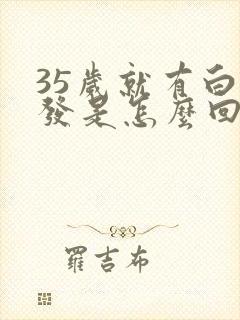 35歲就有白
發是怎麼回
羅吉布